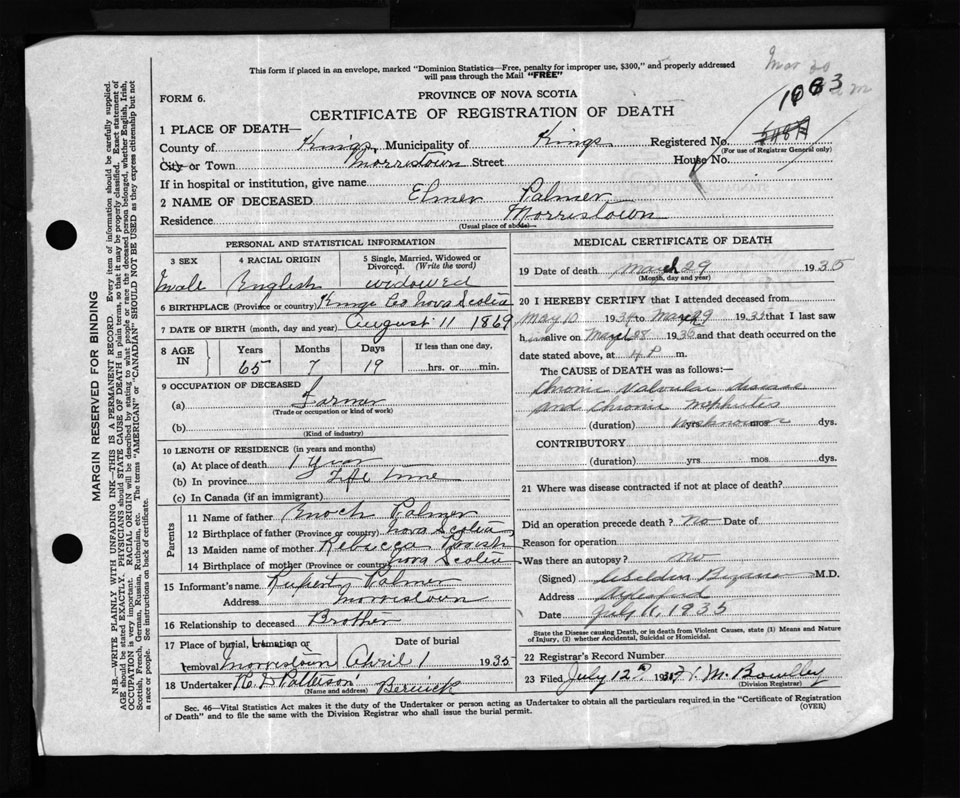 This form if placed in an envelope, marked "Dominion Statistics—Free, penalty for improper use, $300," and properly addressed
will pass through the Mail "FREE"
Mar 29
FORM 6.
PROVINCE OF NOVA SCOTIA
1883
CERTIFICATE OF REGISTRATION OF DEATH
1 PLACE OF DEATH—
County of Kings Municipality of Kings Registered No.
(For use of Registrar General only)
City or Town Morristown Street House No.
If in hospital or institution, give name
2 NAME OF DECEASED Elmer Palmer
Residence Morristown
(Usual place of abode)
PERSONAL AND STATISTICAL INFORMATION
3 SEX 4 RACIAL ORIGIN 5 Single, Married, Widowed or Divorced. (Write the word)
Male English widowed
6 BIRTHPLACE (Province or country) Kings Co. Nova Scotia
7 DATE OF BIRTH (month, day and year) August 11 1869
8 AGE IN Years Months Days If less than one day,
65 7 19 hrs. or min.
9 OCCUPATION OF DECEASED
(a) Farmer
(Trade or occupation or kind of work)
(b)
(Kind of industry)
10 LENGTH OF RESIDENCE (in years and months)
(a) At place of death 1 Year
(b) In province Life time
(c) In Canada (if an immigrant)
Parents
11 Name of father Enoch Palmer
12 Birthplace of father (Province or country) Nova Scotia
13 Maiden name of mother Rebecca
14 Birthplace of mother (Province or country) Nova Scotia
15 Informant's name Rupert Palmer
Address Morristown
16 Relationship to deceased Brother
17 Place of burial, cremation or removal Morristown Date of burial April 1 1935
18 Undertaker Berwick
(Name and address)
MEDICAL CERTIFICATE OF DEATH
19 Date of death March 29 1935
(Month, day and year)
20 I HEREBY CERTIFY that I attended deceased from
May 10 1934 to March 29 1935 that I last saw
him alive on March 28 1935 and that death occurred on the
date stated above, at 4 P m.
The CAUSE of DEATH was as follows:—
Chronic Valvular disease
and Chronic Nephritis
(duration) unknown yrs mos dys.
CONTRIBUTORY
(duration) yrs mos dys.
21 Where was disease contracted if not at place of death?
Did an operation precede death? No Date of
Reason for operation
Was there an autopsy? No
(Signed) M.D.
Address Aylesford
Date July 11, 1935
State the Disease causing Death, or in death from Violent Causes, state (1) Means and Nature
of Injury, (2) whether Accidental, Suicidal or Homicidal.
22 Registrar's Record Number
23 Filed July 12th 193
(Division Registrar)
Sec. 46—Vital Statistics Act makes it the duty of the Undertaker or person acting as Undertaker to obtain all the particulars required in the "Certificate of Registration
of Death" and to file the same with the Division Registrar who shall issue the burial permit.
(OVER)
MARGIN RESERVED FOR BINDING
N.B.—WRITE PLAINLY WITH UNFADING INK—THIS IS A PERMANENT RECORD. Every item of information should be carefully supplied.
AGE should be stated EXACTLY. PHYSICIANS should STATE CAUSE OF DEATH in plain terms, so that it may be properly classified. Exact statement of
OCCUPATION is very important. RACIAL ORIGIN will be described by stating to what people or race the deceased person belonged, whether English, Irish,
Scottish, French, German, Russian, Ruthenian, etc. The terms "AMERICAN" or "CANADIAN" SHOULD NOT BE USED as they express citizenship but not
a race or people. See instructions on back of certificate.